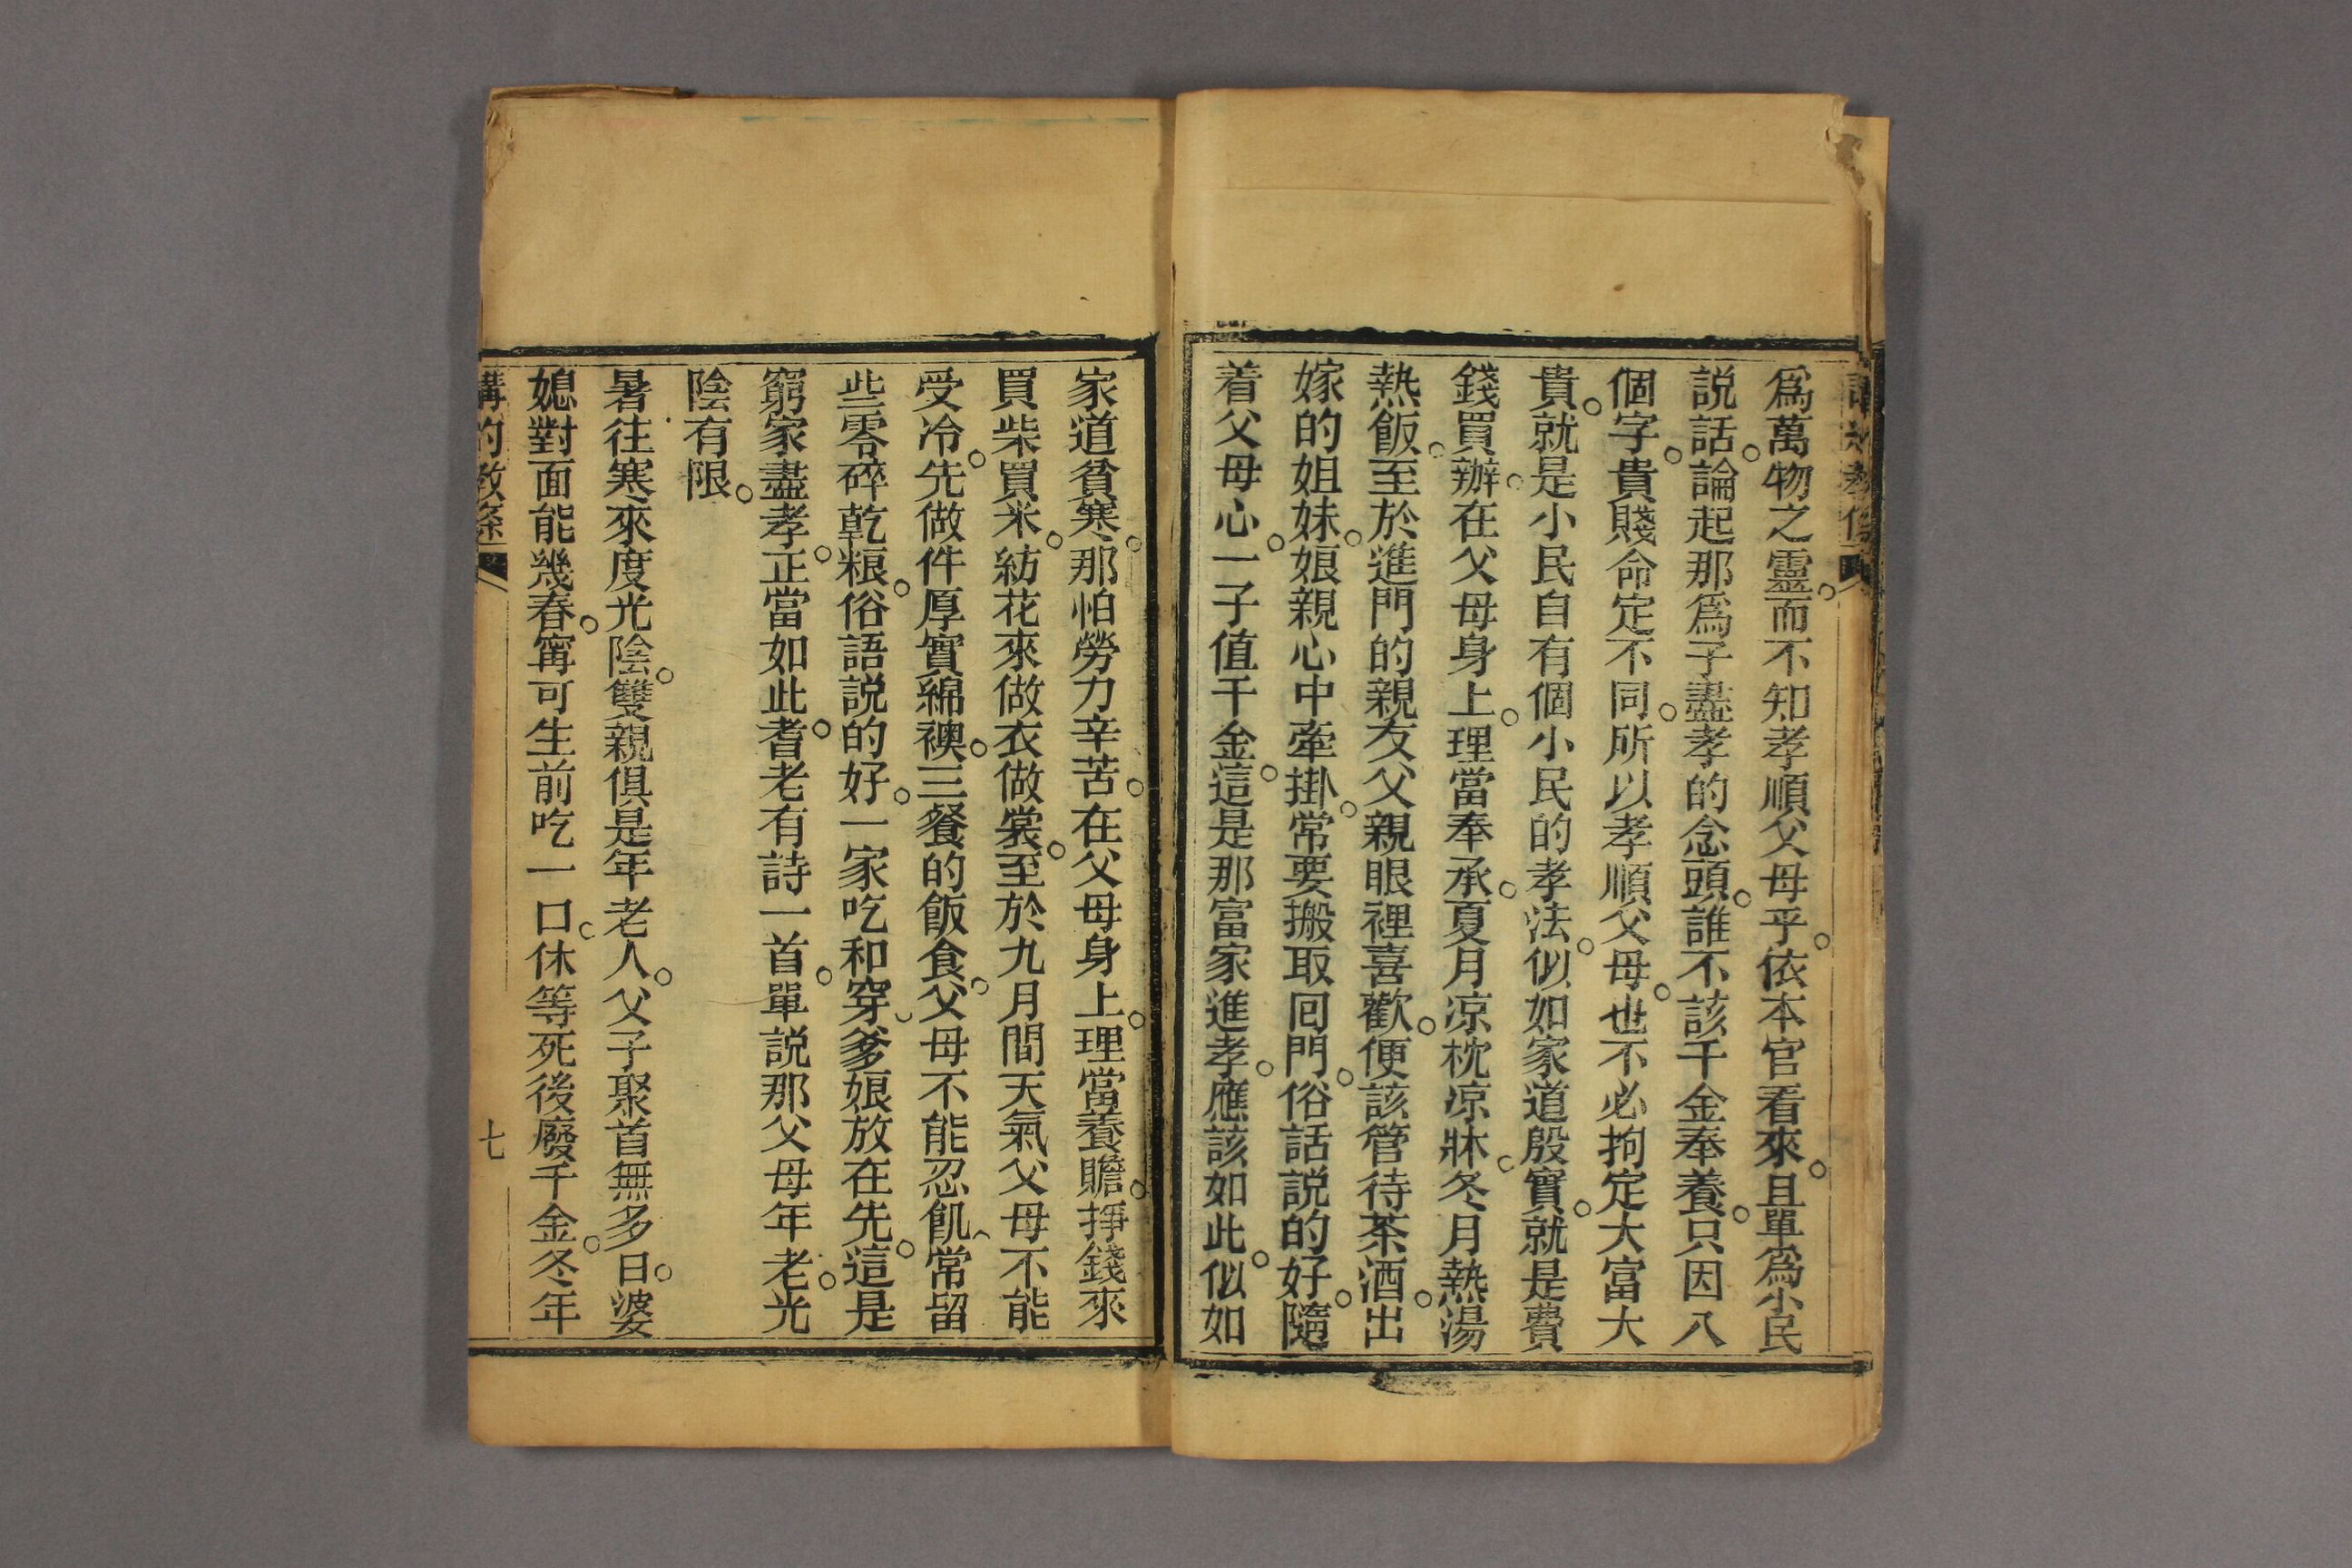 爲萬物之靈。而不知孝順父母乎。依本官看來。且單爲小民
説話。論起那爲子盡孝的念頭。誰不該千金奉養。只因八
個字。貴賤命定不同。所以孝順父母。也不必拘定大富大
貴。就是小民自有個小民的孝法。似如家道殷實。就是費
錢買辦。在父母身上。理當奉承。夏月凉枕凉牀。冬月熱湯
熱飯。至於進門的親友。父親眼裡喜歡。便該管待茶酒。出
嫁的姐妹。娘親心中牽掛。常要搬取回門。俗話説的好。隨
着父母心。一子值千金。這是那富家進孝。應該如此。似如
家道貧寒。那怕勞力辛苦。在父母身上。理當養贍。掙錢來
買柴買米。紡花來做衣做裳。至於九月間天氣父母不能
受冷。先做件厚實綿襖。三餐的飯食。父母不能忍飢。常留
些零碎乾粮。俗語説的好。一家吃和穿。爹娘放在先。這是
窮家盡孝。正當如此。耆老有詩一首。單説那父母年老。光
陰有限。
暑往寒來度光陰。雙親俱是年老人。父子聚首無多日。婆
媳對面能幾春。甯可生前吃一口。休等死後廢千金。冬年
講的教條
七